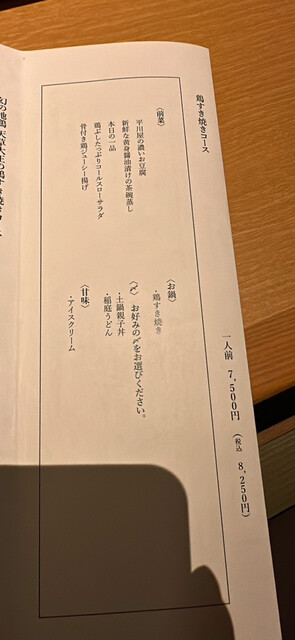 鶏すき焼きコース
一人前 7,500円（税込 8,250円）
〈前菜〉
平川屋の濃いお豆腐
新鮮な黄身醤油漬けの茶碗蒸し
本日の一品
鶏ぶしたっぷりコールスローサラダ
骨付き鶏ジューシー揚げ
〈お鍋〉
・鶏すき焼き
〈〆〉 お好みの〆をお選びください。
・土鍋親子丼
・稲庭うどん
〈甘味〉
・アイスクリーム
幻の地鶏 天草大王の鶏すき焼き